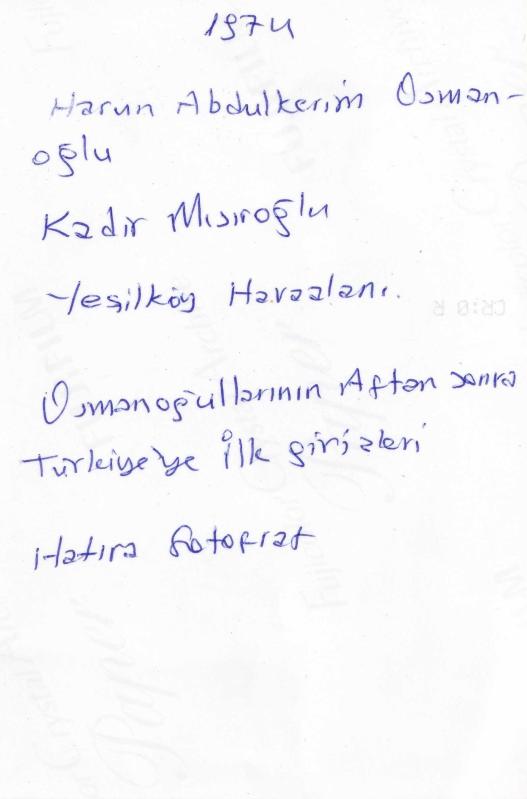 1974
Harun Abdulkerim Osman-
oğlu
Kadir Mısıroğlu
Yeşilköy Havaalanı.
Osmanoğullarının Aftan sonra
Türkiye'ye İlk girişleri
Hatıra fotoğraf
CR:0 R